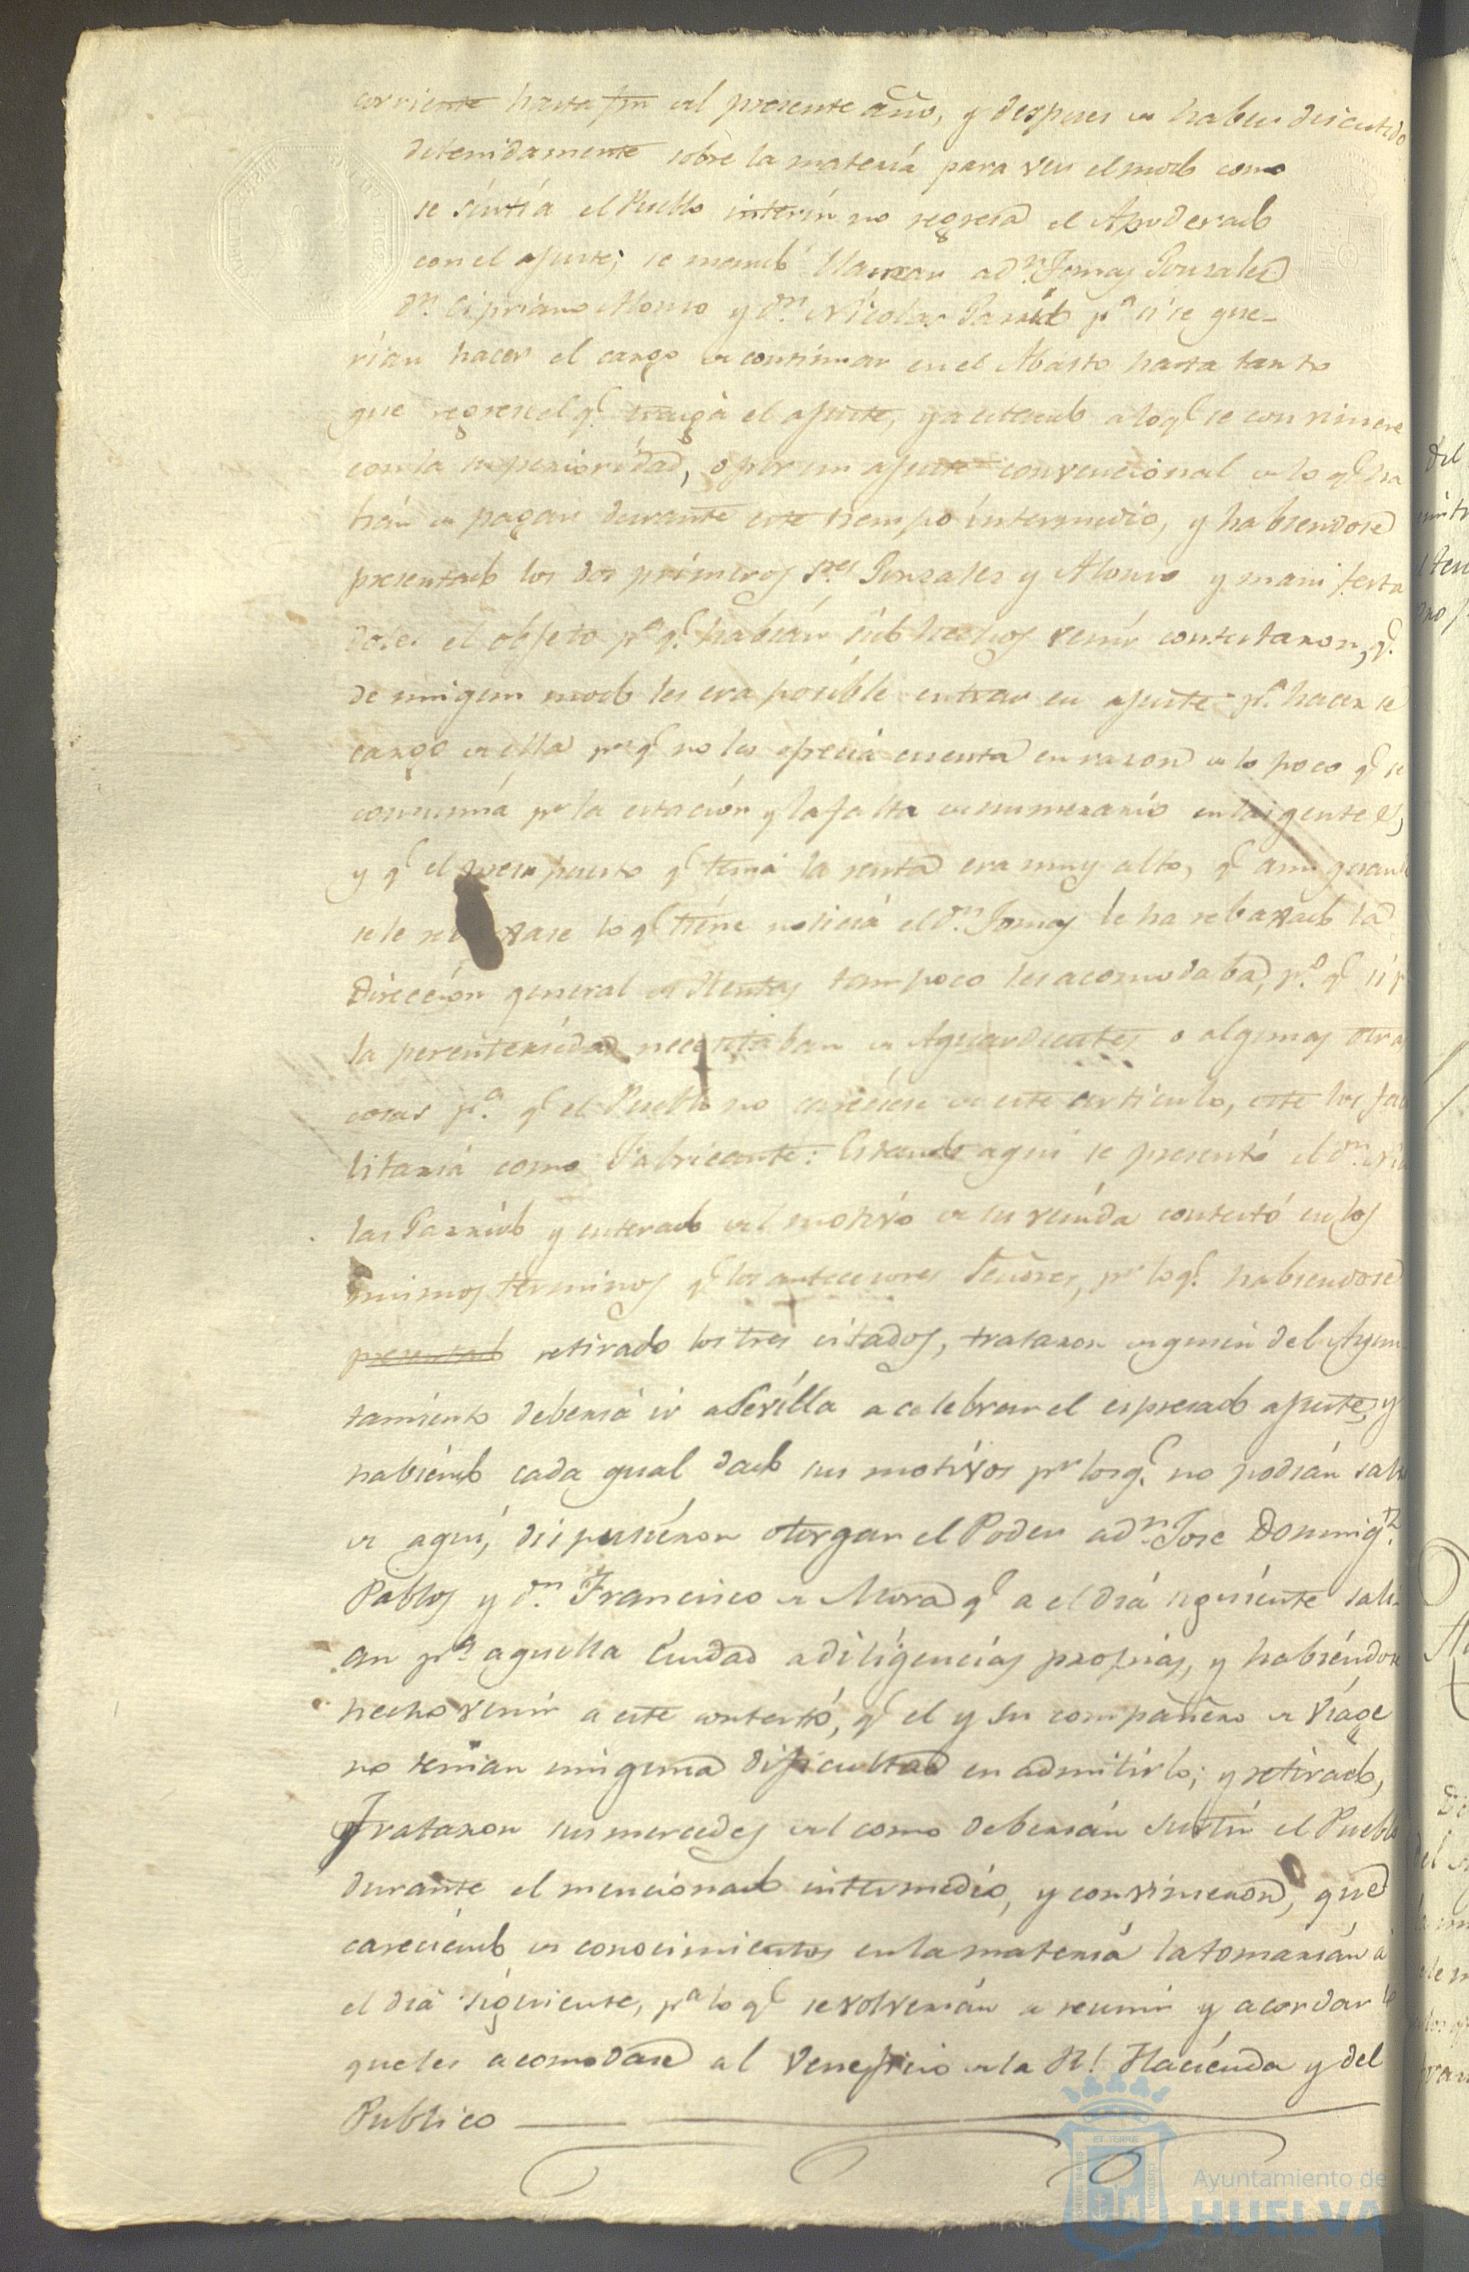 corriente hasta fin del presente año, y despues de haber discutido
detenidamente sobre la materia para ver el modo como
se surtia el Pueblo interin no regresa el Apoderado
con el ajuste; se mandó llamar a Dn. Tomas Gonzales
Dn. Cipriano Alonso y Dn. Nicolas Garrido pa. si se que-
rian hacer el cargo de continuar en el Abasto hasta tanto
que regrese el q.e traiga el ajuste, y ateniendo a lo q.e se conviniere
con la superioridad, o por un ajuste convencional de lo q.e ha
brán de pagar durante este tiempo intermedio, y habiendose
presentado los dos primeros Sres Gonzales y Alonso y manifesta
doles el objeto pa. q.e habian sido hechos venir contestaron, q.e
de ningun modo les era posible entrar en ajuste pa. hacerse
cargo de ella por q.e no les ofrecia cuenta en razon de lo poco q.e se
consumia pr la estación y la falta de numerario en las gentes,
y q.e el presupuesto q.e tenia la renta era muy alto, q.e aun quando
se le rebaxase lo q.e tiene noticia el Dn. Tomas le ha rebaxado la
Dirección general de Rentas tampoco les acomodaba, po. q.e si p
la perentoriedad necesitaban de Aguardientes o algunas otra
cosas pa. q.e el Pueblo no careciese de este articulo, este los faci
litaria como Fabricante: Estando aqui se presentó el Dn. Nico
las Garrido y enterado del motivo de su venida contestó en los
mismos terminos q.e los antecesores Señores, por lo q.e habiendose
presentado retirado los tres citados, trataron de quien del Ayun
tamiento deberia ir a Sevilla a celebrar el espresado ajuste, y
habiendo cada qual dado sus motivos pr los q.e no podian salir
de aqui, dispusieron otorgar el Poder a Dn. Jose Domingz.
Pablos y Dn. Francisco de Mora q.e a el dia siguiente sali-
an pa. aquella Ciudad a diligencias propias, y habiendose
hecho venir a este contestó, q.e el y su compañero de viage
no tenian ninguna dificultad en admitirlo; y retirado,
Trataron sus mercedes del como deberian surtir el Pueblo
durante el mencionado intermedio, y convinieron, que
careciendo de conocimientos en la materia la tomarian a
el dia siguiente, pa lo q.e se volverian a reunir y acordar lo
que les acomodase al veneficio de la Rl. Hacienda y del
Publico
Ayuntamiento de
HUELVA